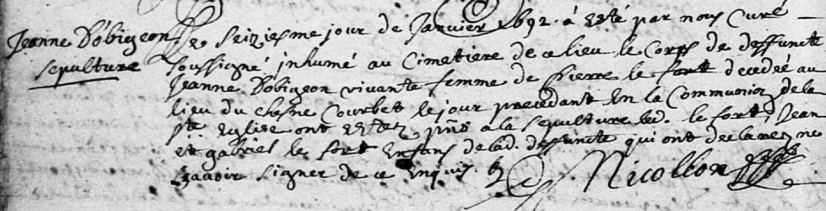 Jeanne Dobigeon
sepulture
Le seiziesme jour de Janvier 1692. a esté par nous Curé
soussigné inhumé au Cimetiere de ce lieu le Corps de deffuncte
Jeanne Dobigeon vivante femme de Pierre le fort decedée au
lieu du chesne Courbet le jour precedant En la Communion de la
ste Eglise ont estez pñs a la sepulture led. le fort, Jean
et gabriel le fort Enfans de lad. deffuncte qui ont declarez ne
sçavoir signer de ce Enquis.
Nicollon